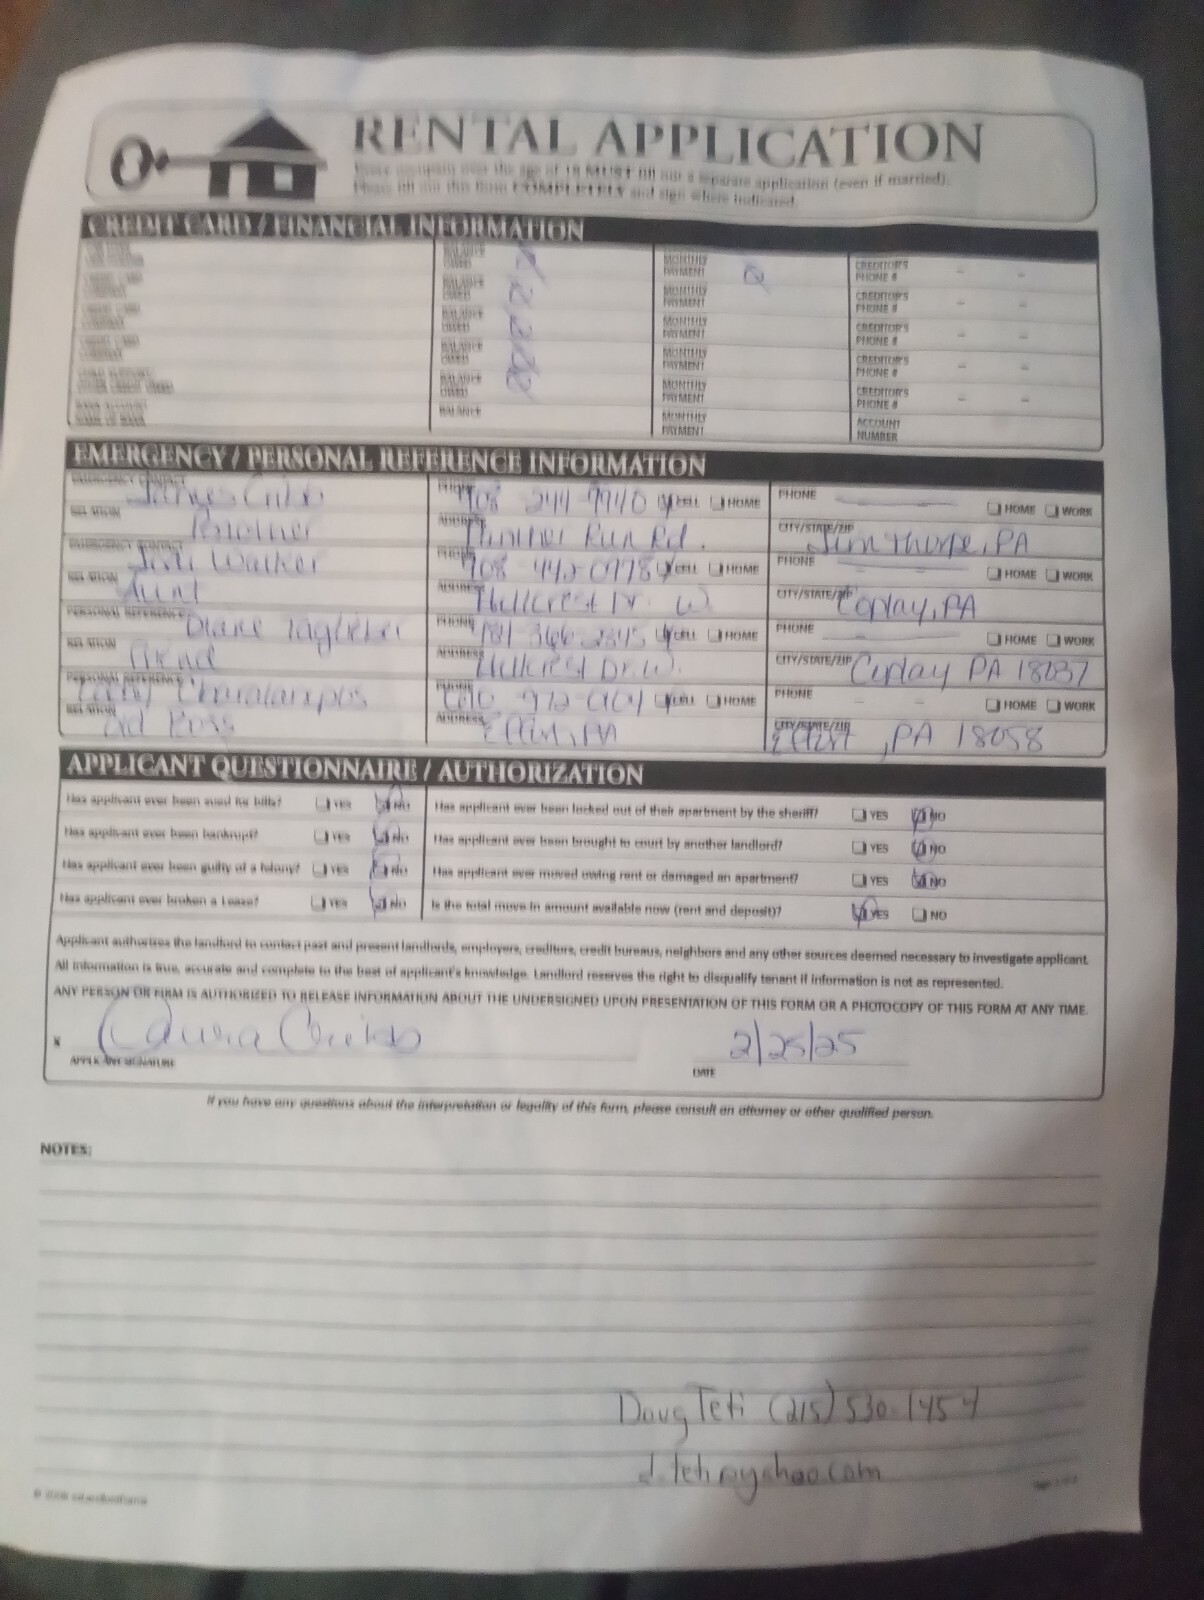 RENTAL APPLICATION
Every occupant over the age of 18 MUST fill out a separate application (even if married).
Please fill out this form COMPLETELY and sign where indicated.
CREDIT CARD / FINANCIAL INFORMATION
BALANCE OWED MONTHLY PAYMENT CREDITOR'S PHONE # - -
CREDIT CARD COMPANY BALANCE OWED MONTHLY PAYMENT CREDITOR'S PHONE # - -
CREDIT CARD COMPANY BALANCE OWED MONTHLY PAYMENT CREDITOR'S PHONE # - -
CREDIT CARD COMPANY BALANCE OWED MONTHLY PAYMENT CREDITOR'S PHONE # - -
BALANCE OWED MONTHLY PAYMENT CREDITOR'S PHONE # - -
BALANCE MONTHLY PAYMENT ACCOUNT NUMBER
EMERGENCY / PERSONAL REFERENCE INFORMATION
EMERGENCY CONTACT James PHONE 244 CELL HOME PHONE HOME WORK
RELATION Brother ADDRESS Run Rd. CITY/STATE/ZIP Jim Thorpe, PA
EMERGENCY CONTACT Walker PHONE CELL HOME PHONE HOME WORK
RELATION Aunt ADDRESS Hillcrest Dr. W CITY/STATE/ZIP Coplay, PA
PERSONAL REFERENCE Diane PHONE CELL HOME PHONE HOME WORK
RELATION Friend ADDRESS Hillcrest Dr. W. CITY/STATE/ZIP Coplay PA 18037
PERSONAL REFERENCE PHONE 972 CELL HOME PHONE - - HOME WORK
RELATION Old Boss ADDRESS PA CITY/STATE/ZIP , PA 18058
APPLICANT QUESTIONNAIRE / AUTHORIZATION
Has applicant ever been sued for bills? YES NO Has applicant ever been locked out of their apartment by the sheriff? YES NO
Has applicant ever been bankrupt? YES NO Has applicant ever been brought to court by another landlord? YES NO
Has applicant ever been guilty of a felony? YES NO Has applicant ever moved owing rent or damaged an apartment? YES NO
Has applicant ever broken a Lease? YES NO Is the total move in amount available now (rent and deposit)? YES NO
Applicant authorizes the landlord to contact past and present landlords, employers, creditors, credit bureaus, neighbors and any other sources deemed necessary to investigate applicant.
All information is true, accurate and complete to the best of applicant's knowledge. Landlord reserves the right to disqualify tenant if information is not as represented.
ANY PERSON OR FIRM IS AUTHORIZED TO RELEASE INFORMATION ABOUT THE UNDERSIGNED UPON PRESENTATION OF THIS FORM OR A PHOTOCOPY OF THIS FORM AT ANY TIME.
X Laura 2/25/25
APPLICANT SIGNATURE DATE
If you have any questions about the interpretation or legality of this form, please consult an attorney or other qualified person.
NOTES:
Doug Teti (215) 530-1454